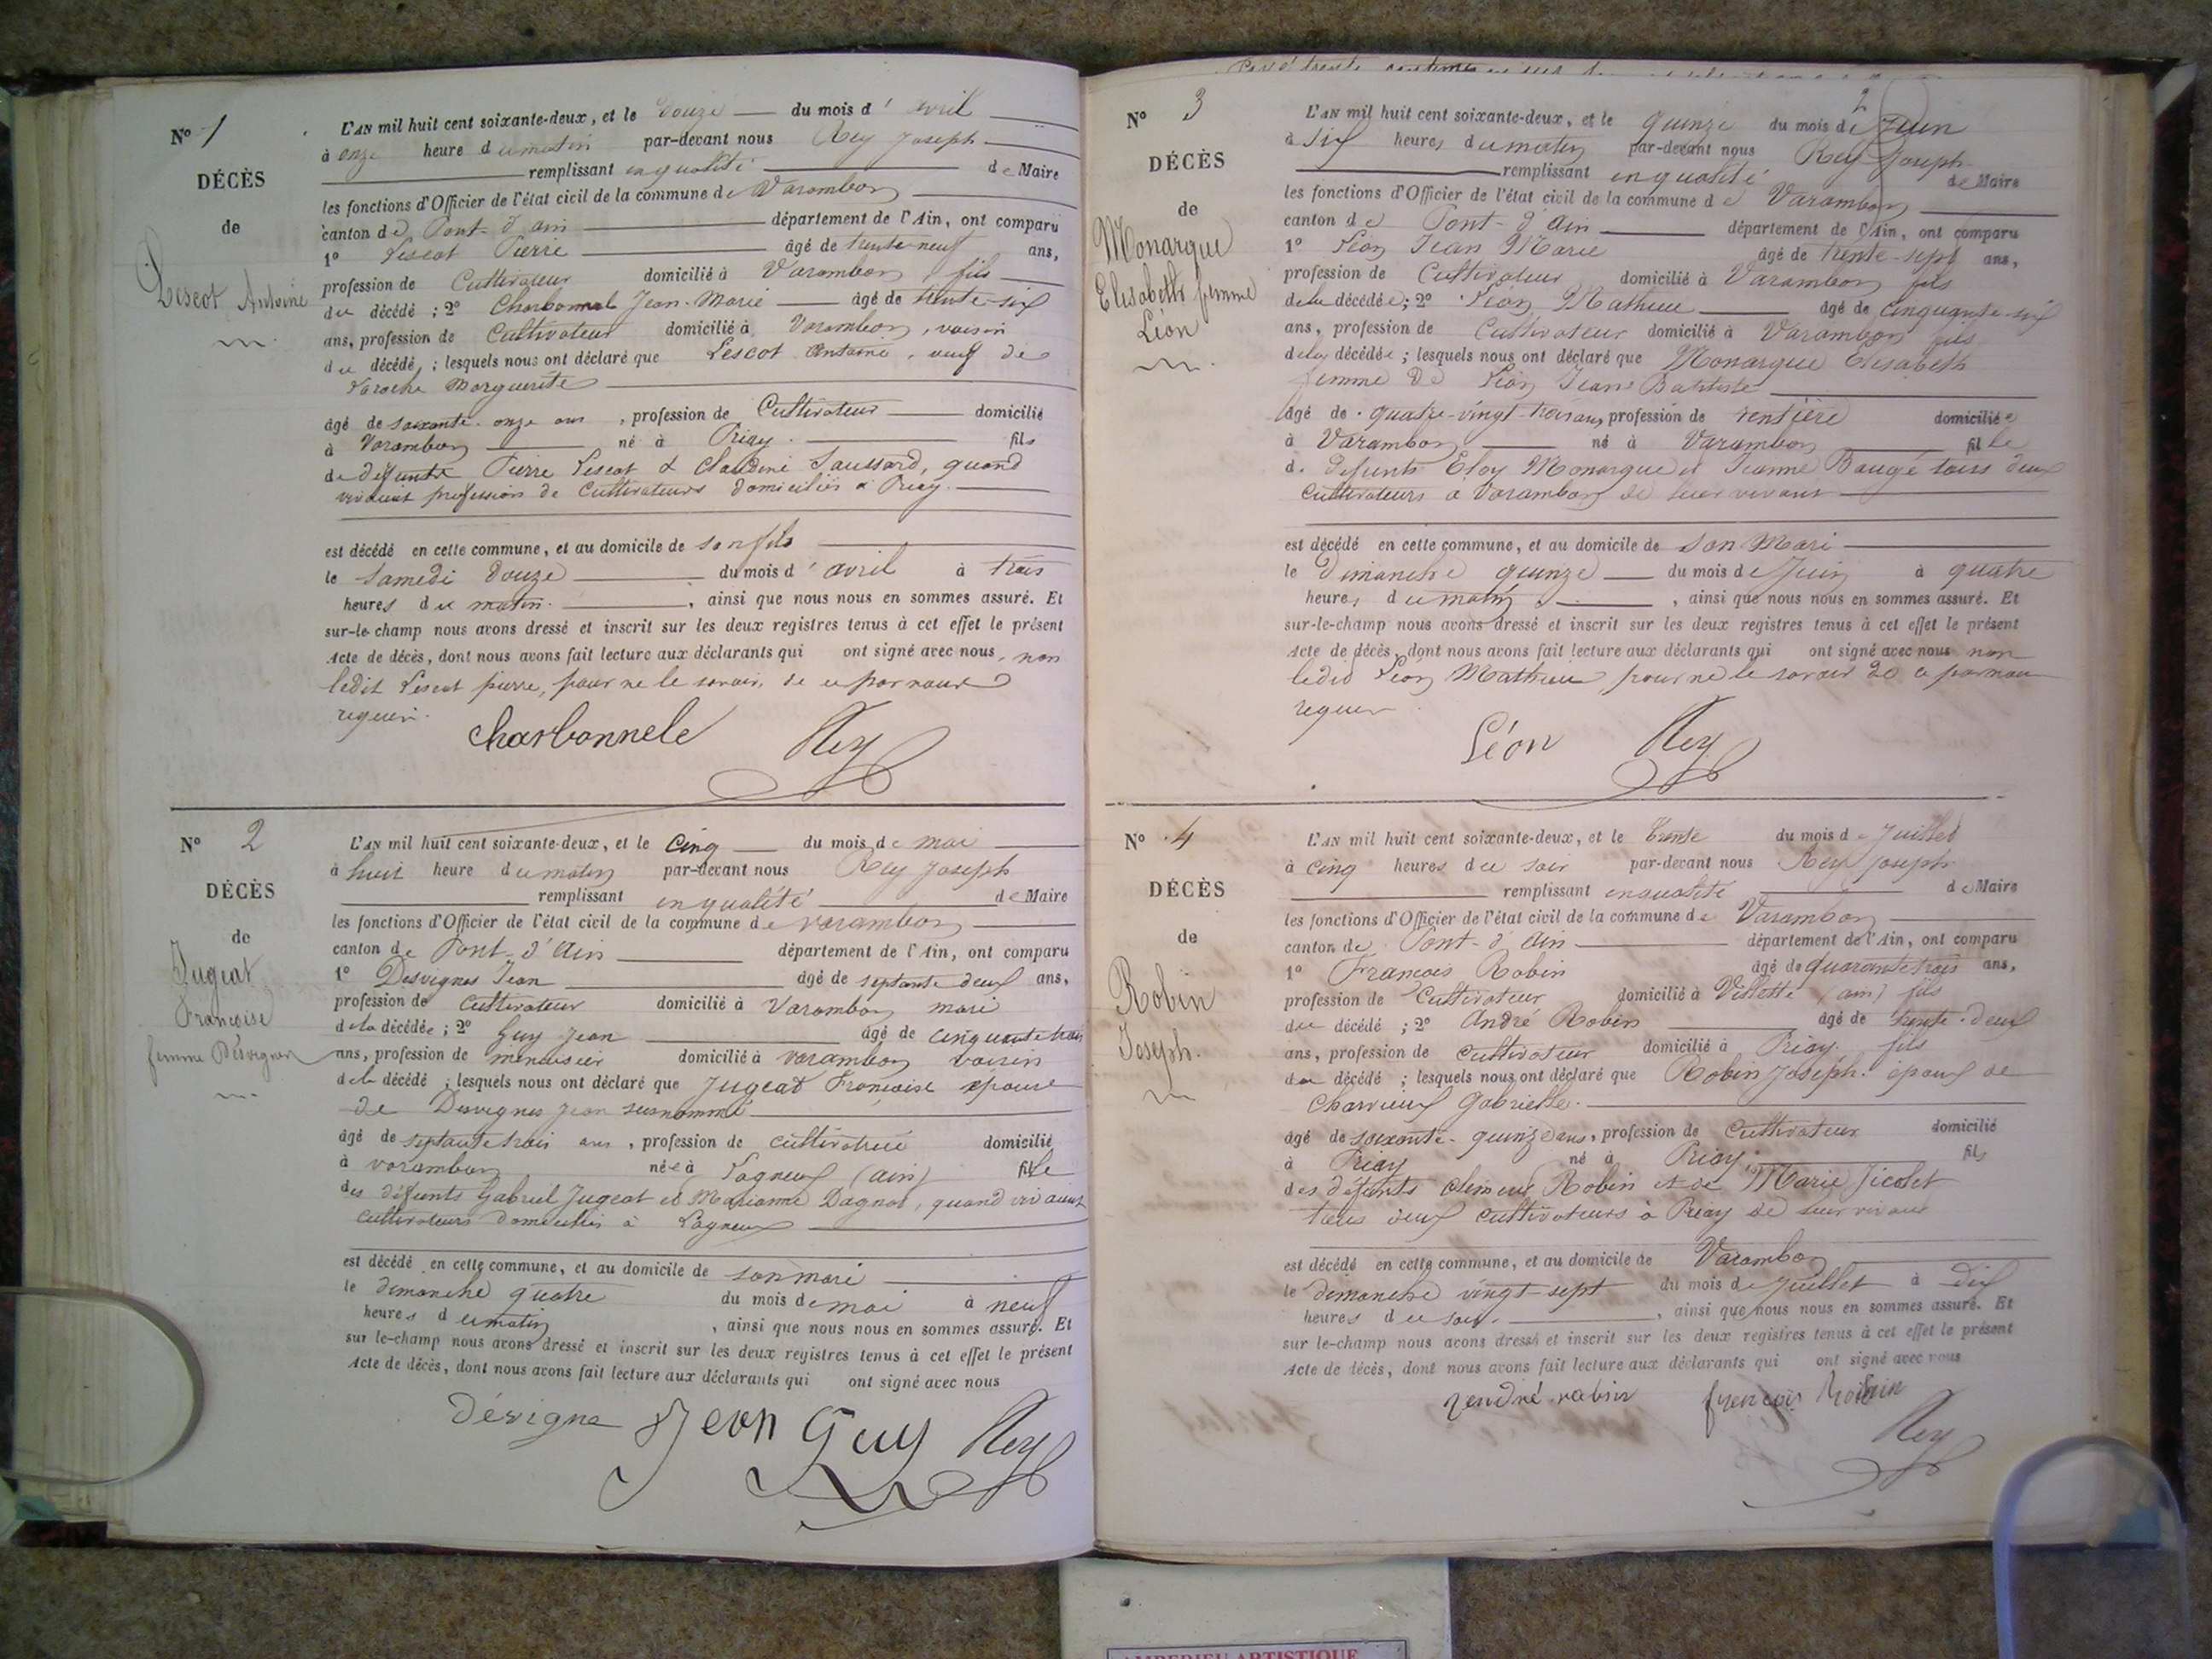 N° 1
DÉCÈS
de
Lescot Antoine
L'AN mil huit cent soixante-deux, et le douze du mois d' avril
à onze heure du matin par-devant nous Rey Joseph
remplissant en qualité de Maire
les fonctions d'Officier de l'état civil de la commune de Varambon
canton de Pont-d'ain département de l'Ain, ont comparu
1° Lescot Pierre âgé de trente neuf ans,
profession de Cultivateur domicilié à Varambon fils
du décédé ; 2° Charbonnel Jean-Marie âgé de trente-six
ans, profession de Cultivateur domicilié à Varambon, voisin
du décédé ; lesquels nous ont déclaré que Lescot Antoine, veuf de
Laroche Marguerite
âgé de soixante-onze ans, profession de Cultivateur domicilié
à Varambon né à Priay fils
de défunts Pierre Lescot & Claudine Saussard, quand
vivaient profession de Cultivateurs domiciliés à Priay.
est décédé en cette commune, et au domicile de son fils
le Samedi douze du mois d' avril à trois
heures du matin. , ainsi que nous nous en sommes assuré. Et
sur-le-champ nous avons dressé et inscrit sur les deux registres tenus à cet effet le présent
Acte de décès, dont nous avons fait lecture aux déclarants qui ont signé avec nous, non
ledit Lescot pierre, pour ne le savoir, de ce par nous
requis.
Charbonnele Rey
N° 2
DÉCÈS
de
Jugeat
Françoise
femme Desvignes
L'AN mil huit cent soixante-deux, et le cinq du mois de mai
à huit heure du matin par-devant nous Rey Joseph
remplissant en qualité de Maire
les fonctions d'Officier de l'état civil de la commune de varambon
canton de Pont-d'Ain département de l'Ain, ont comparu
1° Desvignes Jean âgé de septante deux ans,
profession de cultivateur domicilié à Varambon mari
de la décédée ; 2° Guy Jean âgé de cinquante trois
ans, profession de menuisier domicilié à varambon voisin
de la décédé ; lesquels nous ont déclaré que Jugeat Françoise epouse
de Desvignes Jean susnommé
âgé de septante trois ans, profession de cultivatrice domicilié
à varambon née à Lagneux (ain) fille
des défunts Gabriel Jugeat et Marianne Dagnol, quand vivaient
cultivateurs domiciliés à Lagneux
est décédé en cette commune, et au domicile de son mari
le dimanche quatre du mois de mai à neuf
heures du matin , ainsi que nous nous en sommes assuré. Et
sur le-champ nous avons dressé et inscrit sur les deux registres tenus à cet effet le présent
Acte de décès, dont nous avons fait lecture aux déclarants qui ont signé avec nous
Dévigne Jean Guy Rey
2
N° 3
DÉCÈS
de
Monarque
Elisabeth femme
Léon
L'AN mil huit cent soixante-deux, et le quinze du mois de Juin
à six heures du matin par-devant nous Rey Joseph
remplissant en qualité de Maire
les fonctions d'Officier de l'état civil de la commune de Varambon
canton de Pont-d'Ain département de l'Ain, ont comparu
1° Léon Jean Marie âgé de trente-sept ans,
profession de Cultivateur domicilié à Varambon fils
de la décédée ; 2° Léon Mathieu âgé de cinquante-six
ans, profession de Cultivateur domicilié à Varambon fils
de la décédée ; lesquels nous ont déclaré que Monarque Elisabeth
femme de Léon Jean Batiste
âgé de quatre-vingt-trois ans, profession de rentière domiciliée
à Varambon né à Varambon fille
de défunts Eloy Monarque et Jeanne Baugé tous deux
Cultivateurs à Varambon de leur vivant
est décédé en cette commune, et au domicile de son Mari
le Dimanche quinze du mois de Juin à quatre
heures du matin , ainsi que nous nous en sommes assuré. Et
sur-le-champ nous avons dressé et inscrit sur les deux registres tenus à cet effet le présent
Acte de décès, dont nous avons fait lecture aux déclarants qui ont signé avec nous non
ledit Léon Mathieu pour ne le savoir de ce par nous
requis
Léon Rey
N° 4
DÉCÈS
de
Robin
Joseph.
L'AN mil huit cent soixante-deux, et le trente du mois de Juillet
à cinq heures du soir par-devant nous Rey Joseph
remplissant en qualité de Maire
les fonctions d'Officier de l'état civil de la commune de Varambon
canton de Pont-d'Ain département de l'Ain, ont comparu
1° Francois Robin âgé de quarante trois ans,
profession de Cultivateur domicilié à Villette (ain) fils
du décédé ; 2° André Robin âgé de trente-deux
ans, profession de cultivateur domicilié à Priay. fils
du décédé ; lesquels nous ont déclaré que Robin Joseph. époux de
Charvieux Gabrielle.
âgé de soixante-quinze ans, profession de Cultivateur domicilié
à Priay né à Priay fils
des défunts clément Robin et de Marie Jicolet
tous deux cultivateurs à Priay de leur vivant
est décédé en cette commune, et au domicile de Varambon
le Dimanche vingt-sept du mois de Juillet à dix
heures du soir. , ainsi que nous nous en sommes assuré. Et
sur le-champ nous avons dressé et inscrit sur les deux registres tenus à cet effet le présent
Acte de décès, dont nous avons fait lecture aux déclarants qui ont signé avec nous
andré robin françois Robin
Rey
AMBERIEU ARTISTIQUE